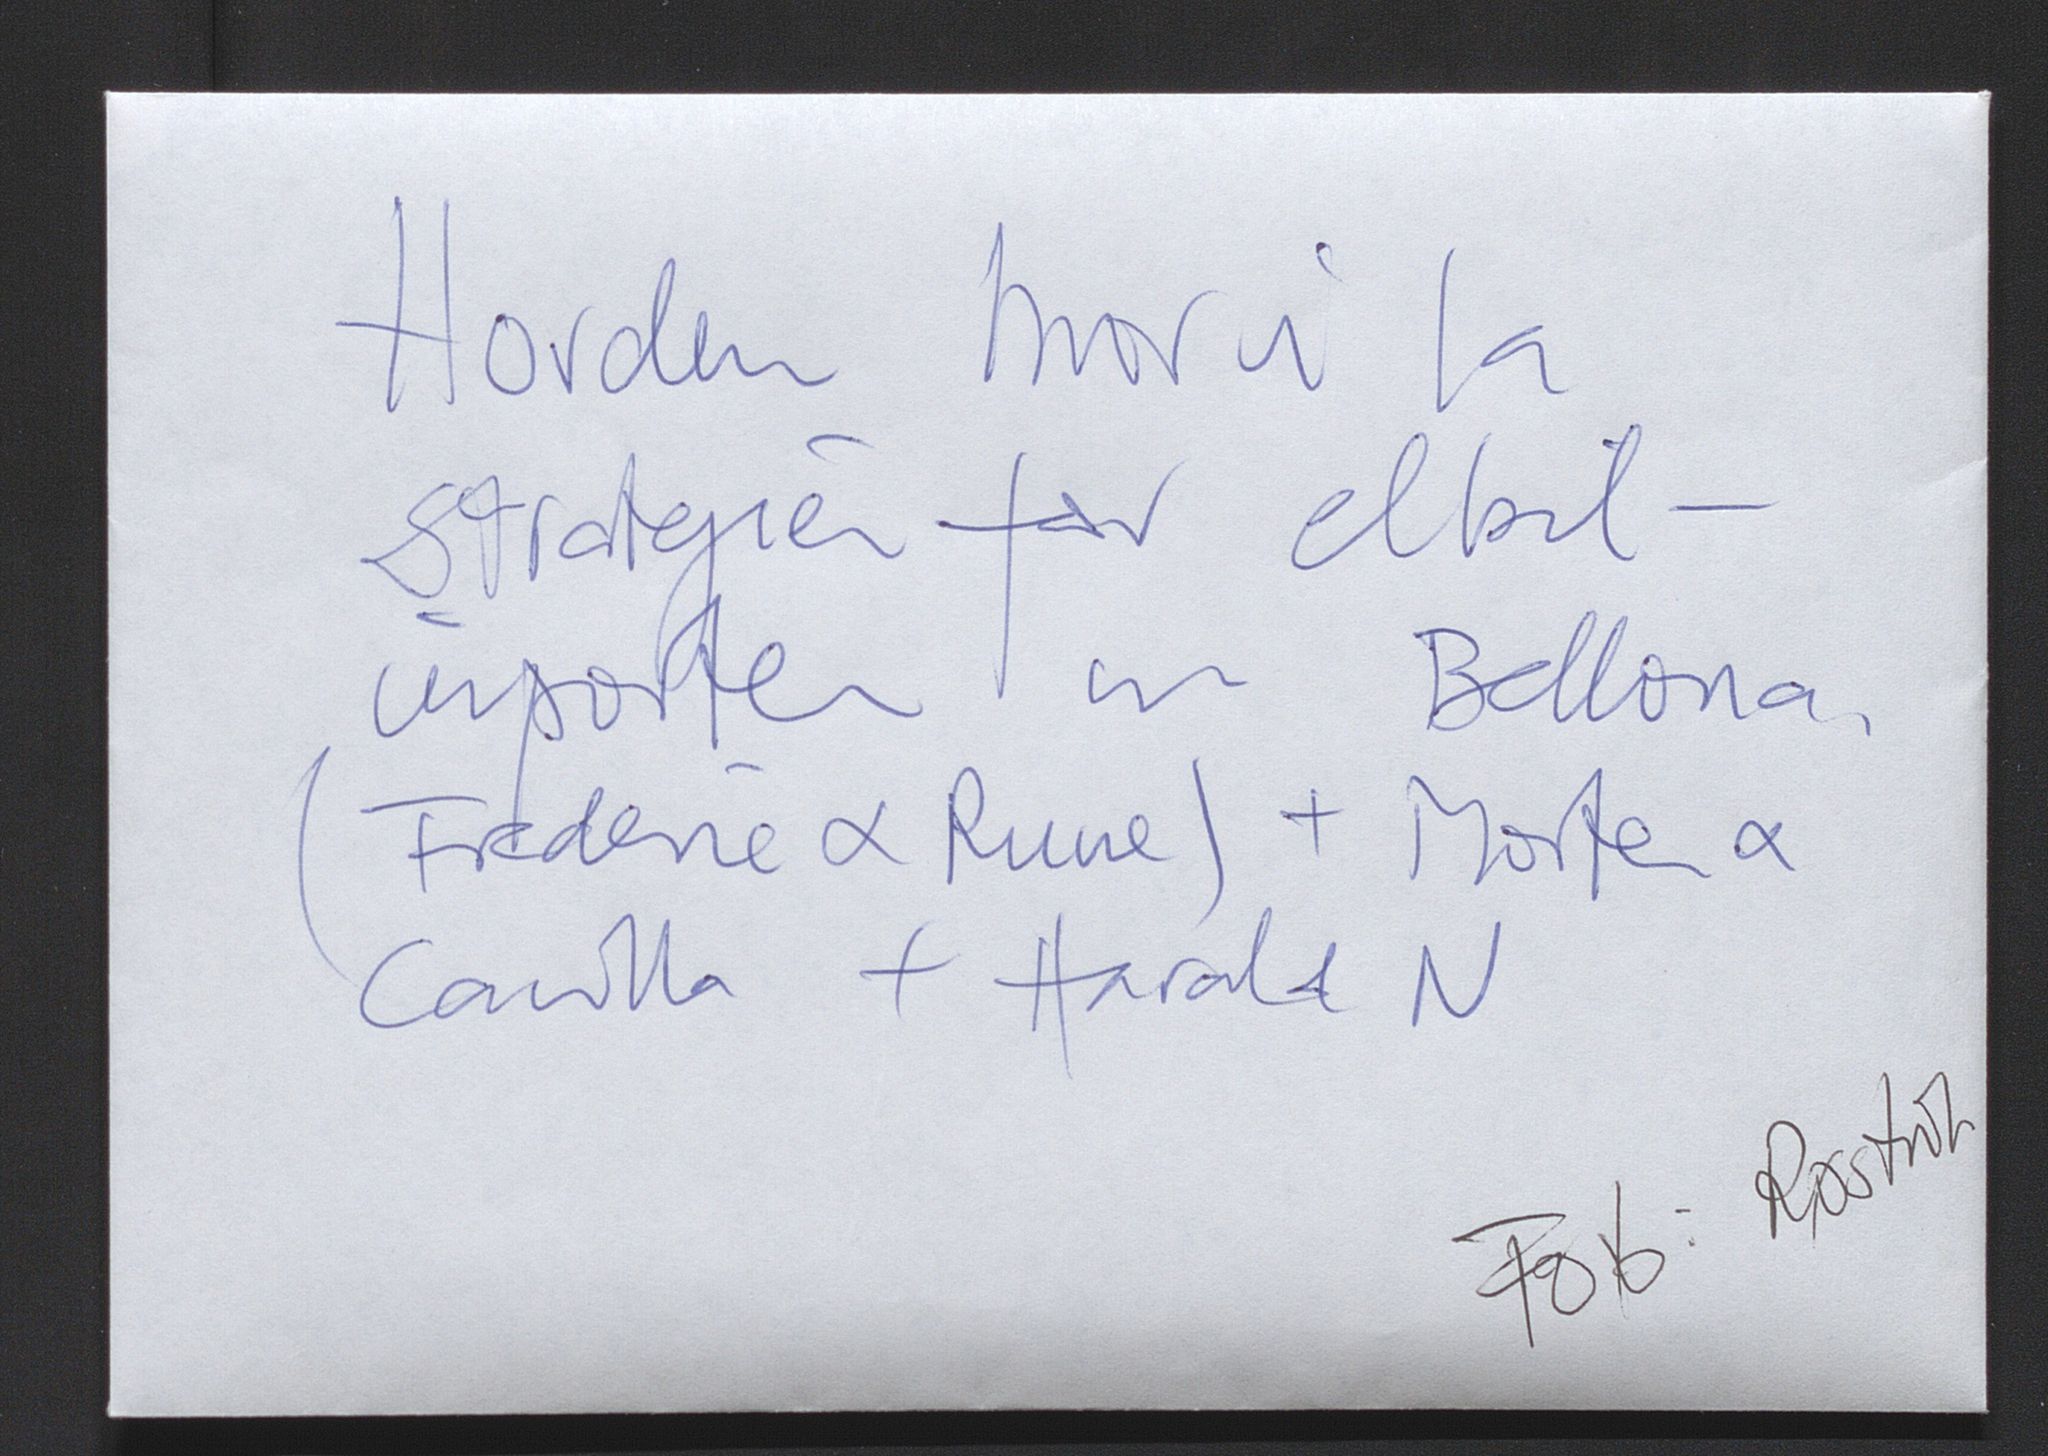 Horden hvor vi la
strategien for elbil-
importen m Bellona,
(Frederic & Rune) + Morten &
Camilla + Harald N
Foto: Røstvik